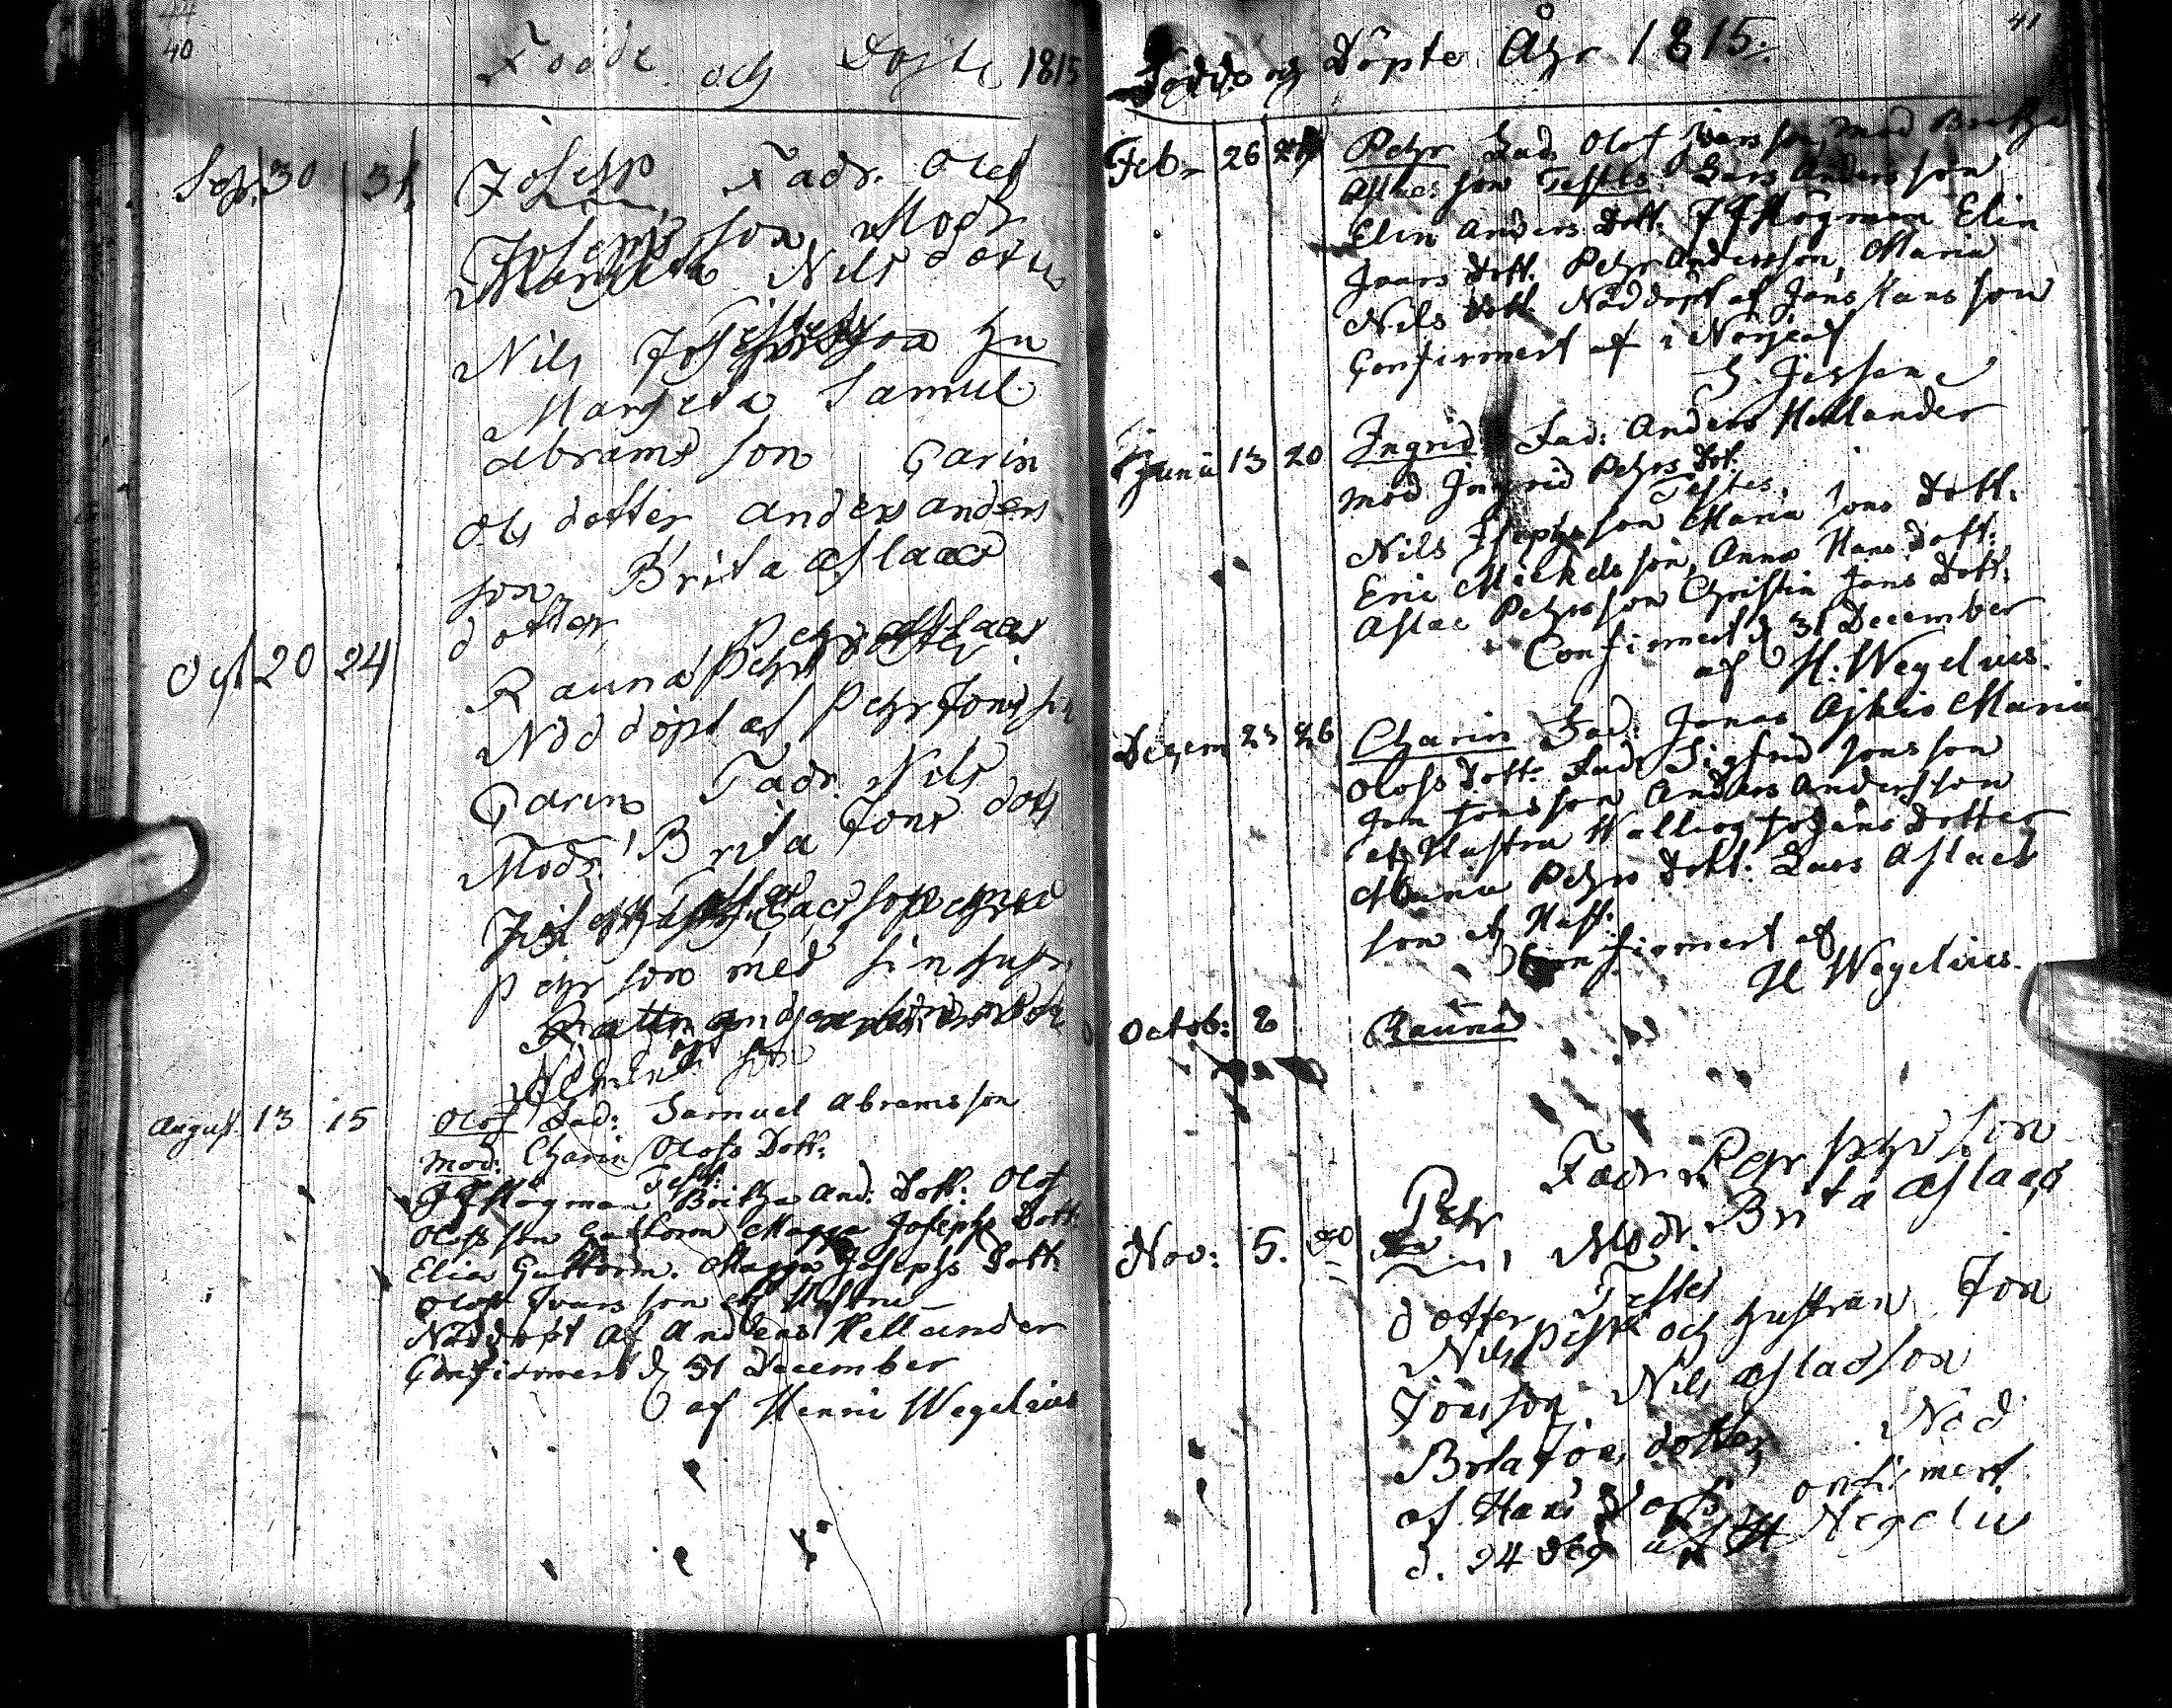 44
40
Födde och Döpte 1815
Sep. 30 31 Joseph Fadr. Olof
Josephson Modr
Margreta Nils doter
Nils Josephson hu
Margreta Samul
abrams son Carin
Ols dotter anders anders
son Brita aslacs
dotter
Oct 20 24 Rauna Pehrs
Nöddöpt af Pehr Jons son
Carin Fadr. Nils
Modr. Brita Jons dott
Pehrson med sin hustr
August. 13 15 Olof Fad: Samuel Abramsson
Mod: Charin Olofs Dott.
Test:
J F Högman Britha And: Dott: Olof
Olofsson Guttorm Magga Josephs Dott.
Elia Guttorm. Magga Josephs Dott.
Olof Ivarsson och Hustru
Nöddöpt af Anders Hellander
Confirmert d 31 December
af Henric Wegelius
41
Födde och Döpte Åhr 1815.
Febr 26 Pehr Fad. Olof Ivarsson, Mod Britha
Aslacs son Testes: Lars Andersson
Elin Anders Dott. J F Högman Elin
Ivars Dott. Pehr Andersson, Maria
Nils Dott. Nöddöpt af Jöns Hansson
Confirmert af i Norje af
Jessen
Junii 13 20 Ingrid Fad: Anders Hellander
Mod Ingrid Pehrs Dot.
Testes.
Nils Josephsson Maria Jons Dott.
Eric Mickelsson, Anna Hans Dott.
Aslac Pehrsson Christin Jons Dott.
Confirmert d 31 December
af H: Wegelius.
Decem 23 26 Charin Fad: Jonas Ajkio Maria
Olofs Dott. Fad. Sigfrid Jonsson
Jon Jonsson Anders Andersson
och Hustru Walborg Johans Dotter
Maria Pehrs Dott. Lars Aslacs
son och Hust:
Confirmert af
H Wegelius.
Octob: 2 Rauna
Fadr Pehr Pehrsson
Nov: 5. 20 Pehr Modr. Brita aslacs
dotter Testes
Nils och hustrun Jon
Jonsson Nils aslacson
Brita Jons dotter Nöd
af Hans Lars onfirmert
d. 24 Dec af H Wegelius